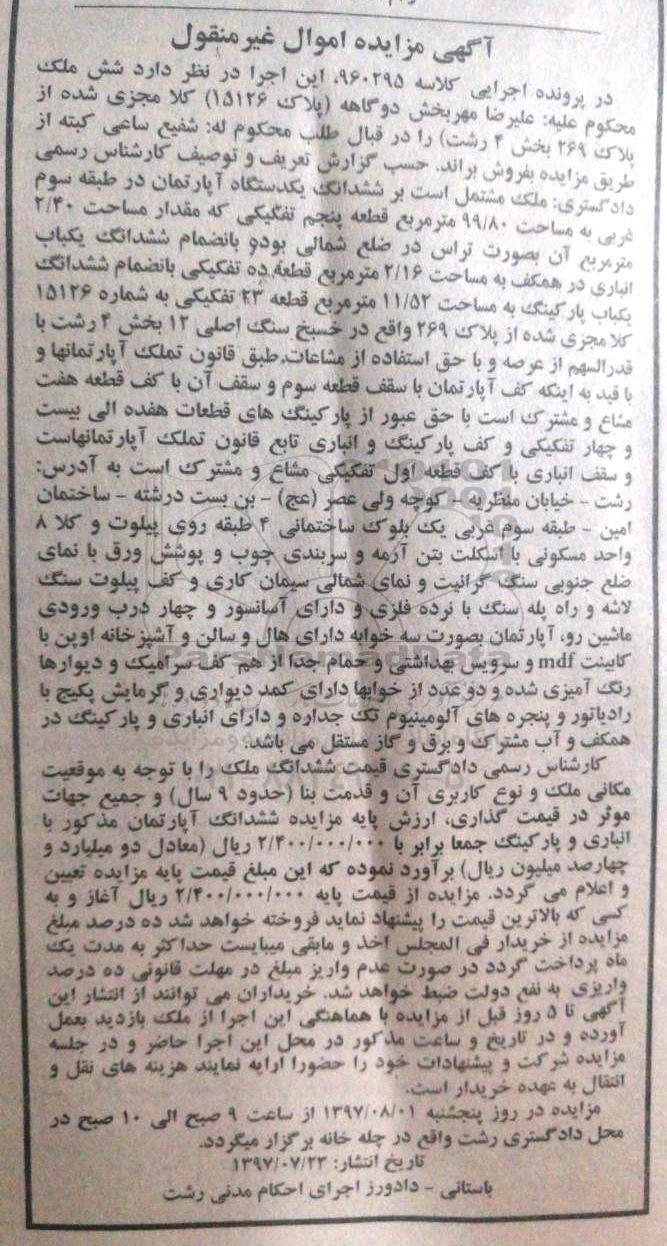 آگهی مزایده اموال غیرمنقول
در پرونده اجرایی کلاسه ۹۶۰۲۹۵، این اجرا در نظر دارد شش ملک
محکوم علیه: علیرضا مهربخش دوگاهه (پلاک ۱۵۱۲۶) کلا مجزی شده از
پلاک ۲۶۹ بخش ۴ رشت) را در قبال طلب محکوم له: شفیع ساعی کبته از
طریق مزایده بفروش براند. حسب گزارش تعریف و توصیف کارشناس رسمی
دادگستری: ملک مشتمل است بر ششدانگ یکدستگاه آپارتمان در طبقه سوم
غربی به مساحت ۹۹/۸۰ مترمربع قطعه پنجم تفکیکی که مقدار مساحت ۲/۴۰
مترمربع آن بصورت تراس در ضلع شمالی بوده بانضمام ششدانگ یکباب
انباری در همکف به مساحت ۲/۱۶ مترمربع قطعه ده تفکیکی بانضمام ششدانگ
یکباب پارکینگ به مساحت ۱۱/۵۲ مترمربع قطعه ۲۳ تفکیکی به شماره ۱۵۱۲۶
کلا مجزی شده از پلاک ۲۶۹ واقع در خسبخ سنگ اصلی ۱۲ بخش ۴ رشت با
قدرالسهم از عرصه و با حق استفاده از مشاعات، طبق قانون تملک آپارتمانها و
با قید به اینکه کف آپارتمان با سقف قطعه سوم و سقف آن با کف قطعه هفت
مشاع و مشترک است با حق عبور از پارکینگ های قطعات هفده الی بیست
و چهار تفکیکی و کف پارکینگ و انباری تابع قانون تملک آپارتمانهاست
و سقف انباری با کف قطعه اول تفکیکی مشاع و مشترک است به آدرس:
رشت - خیابان منظریه - کوچه ولی عصر (عج) - بن بست درشته - ساختمان
امین - طبقه سوم غربی یک بلوک ساختمانی ۴ طبقه روی پیلوت و کلا ۸
واحد مسکونی با اسکلت بتن آرمه و سربندی چوب و پوشش ورق با نمای
ضلع جنوبی سنگ گرانیت و نمای شمالی سیمان کاری و کف پیلوت سنگ
لاشه و راه پله سنگ با نرده فلزی و دارای آسانسور و چهار درب ورودی
ماشین رو، آپارتمان بصورت سه خوابه دارای هال و سالن و آشپزخانه اوپن با
کابینت mdf و سرویس بهداشتی و حمام جدا از هم کف سرامیک و دیوارها
رنگ آمیزی شده و دو عدد از خوابها دارای کمد دیواری و گرمایش پکیج با
رادیاتور و پنجره های آلومینیوم تک جداره و دارای انباری و پارکینگ در
همکف و آب مشترک و برق و گاز مستقل می باشد.
کارشناس رسمی دادگستری قیمت ششدانگ ملک را با توجه به موقعیت
مکانی ملک و نوع کاربری آن و قدمت بنا (حدود ۹ سال) و جمیع جهات
موثر در قیمت گذاری، ارزش پایه مزایده ششدانگ آپارتمان مذکور با
انباری و پارکینگ جمعا برابر با ۲/۴۰۰/۰۰۰/۰۰۰ ریال (معادل دو میلیارد و
چهارصد میلیون ریال) برآورد نموده که این مبلغ قیمت پایه مزایده تعیین
و اعلام می گردد. مزایده از قیمت پایه ۲/۴۰۰/۰۰۰/۰۰۰ ریال آغاز و به
کسی که بالاترین قیمت را پیشنهاد نماید فروخته خواهد شد ده درصد مبلغ
مزایده از خریدار فی المجلس اخذ و مابقی میبایست حداکثر به مدت یک
ماه پرداخت گردد در صورت عدم واریز مبلغ در مهلت قانونی ده درصد
واریزی به نفع دولت ضبط خواهد شد. خریداران می توانند از انتشار این
آگهی تا ۵ روز قبل از مزایده با هماهنگی این اجرا از ملک بازدید بعمل
آورده و در تاریخ و ساعت مذکور در محل این اجرا حاضر و در جلسه
مزایده شرکت و پیشنهادات خود را حضورا ارایه نمایند هزینه های نقل و
انتقال به عهده خریدار است.
مزایده در روز پنجشنبه ۱۳۹۷/۰۸/۰۱ از ساعت ۹ صبح الی ۱۰ صبح در
محل دادگستری رشت واقع در چله خانه برگزار میگردد.
تاریخ انتشار: ۱۳۹۷/۰۷/۲۳
باستانی - دادورز اجرای احکام مدنی رشت